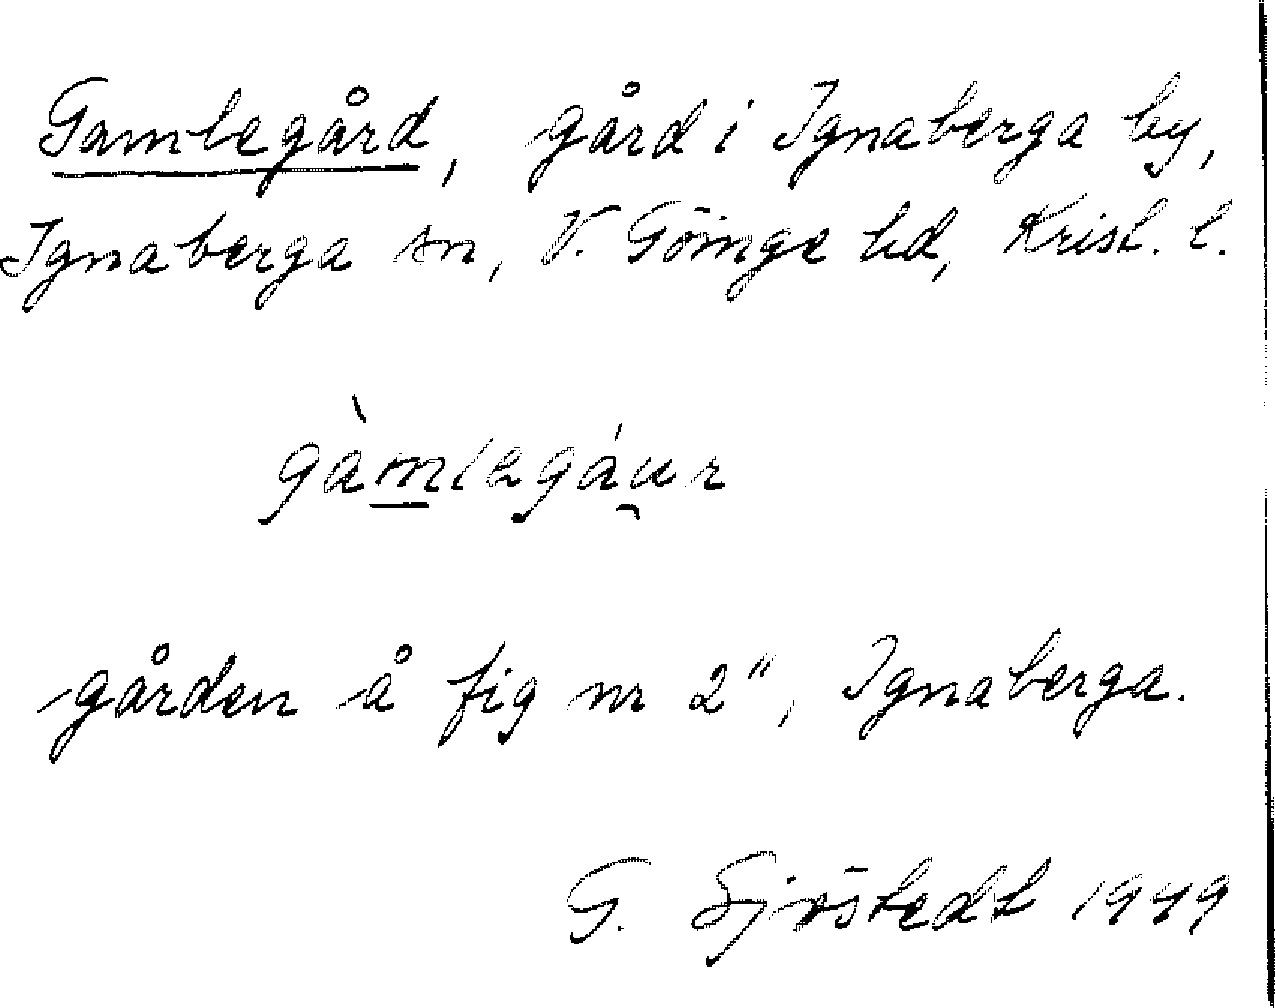 Gamlegård, gård i Ignaberga by,
Ignaberga sn, V. Göinge hd, Krist. l.
gàmlegáu̯r
gården å fig nr 2", Ignaberga.
G. Sjöstedt 1949